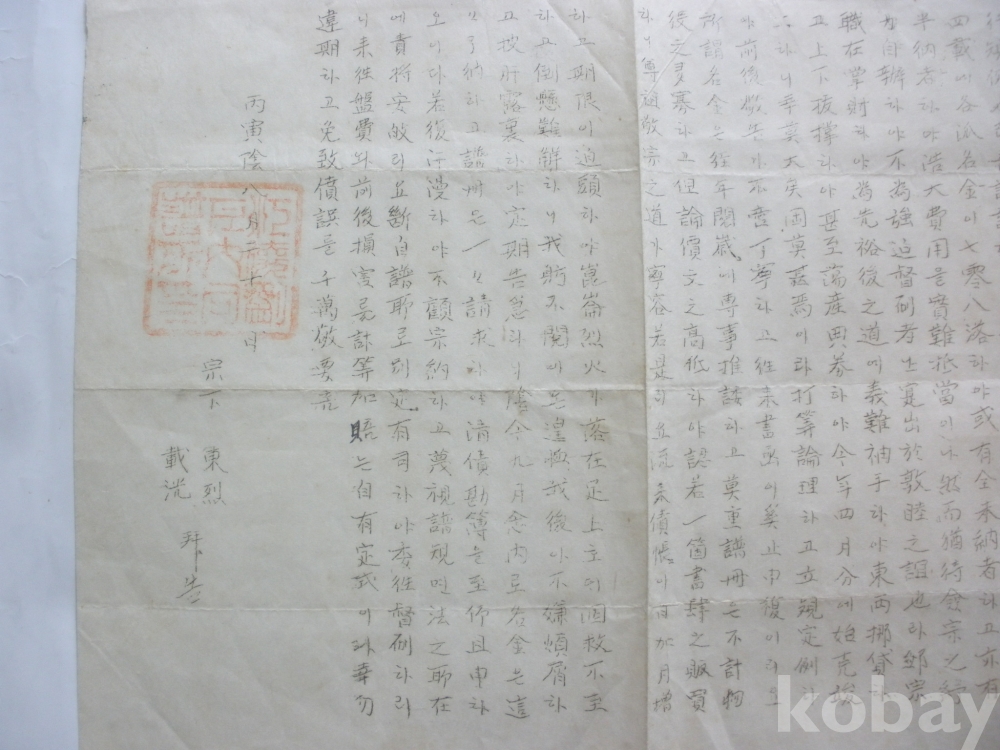 四載에各派名金이七零八落하야或有全未納者하고亦有
半納者하야浩大費用을實難抵當이나然而猶待僉宗之
自辦하야不爲強迫督刷者는寔出於敦睦之誼也라鄙宗
職在掌財하야爲先裕後之道에義難袖手하야東西挪貸하
고上下拔擇하야甚至蕩産典券하야今年四月分에始克竣
하니幸莫大矣罔莫甚焉이라打筭論理하고立規定例하
야前後敬告가不啻丁寧하고往來書函이奚止申複이리오
所謂名金은經年閱歲에專事推諉하고莫重譜冊은不計物
役之多寡하고但論價文之高低하야認若一箇書肆之販買
하니尊祖敬宗之道가寧容若是 流來債帳이日加月增
하고期限이迫頭하야崑崙烈火가落在足上 救不至
하고倒懸難解하니我躬不閱에遑恤我後아不嫌煩屑하
고披肝露裏하야定期告急 陰今九月念內로名金은這
這了納하고譜冊은一一請求하야淸債勘簿를至仰且申하
오이다若復汗漫하야不顧宗納하고蔑視譜規면法之所在
에責將安 리요斷自譜所로別定有司하야委往督刷하리
니來往盤費와前後損害를計等加賠는自有定式이라幸勿
違期하고免致僨誤를千萬敬要홈
丙寅陰八月二十日
宗下 東烈
載洸 拜告
kobay